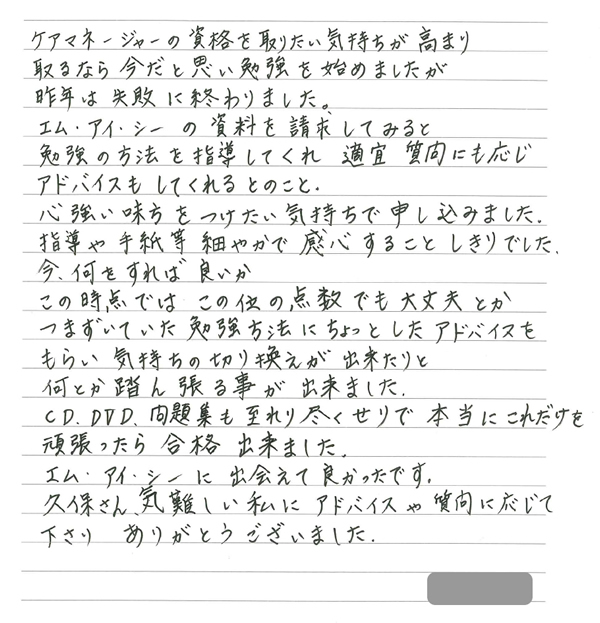 ケアマネージャーの資格を取りたい気持ちが高まり
取るなら今だと思い勉強を始めましたが
昨年は失敗に終わりました。
エム・アイ・シーの資料を請求してみると
勉強の方法を指導してくれ 適宜 質問にも応じ
アドバイスもしてくれるとのこと.
心強い味方をつけたい気持ちで申し込みました.
指導や手紙等細やかで感心することしきりでした.
今、何をすれば良いか
この時点ではこの位の点数でも大丈夫とか
つまずいていた勉強方法にちょっとしたアドバイスを
もらい気持ちの切り換えが出来たりと
何とか踏ん張る事が出来ました.
CD.DVD.問題集も至れり尽くせりで本当にこれだけを
頑張ったら合格出来ました.
エム・アイ・シーに出会えて良かったです.
久保さん、気難しい私にアドバイスや質問に応じて
下さり ありがとうございました.